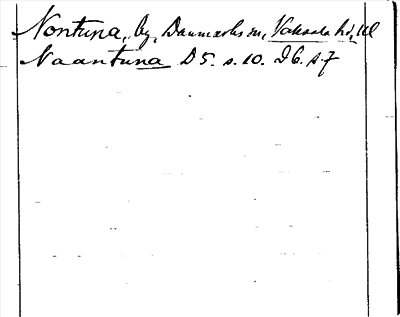 Nontuna, by, Danmarks sn, Vaksala hd, Upl
Naantuna D 5. s. 10. I 6. s. 7